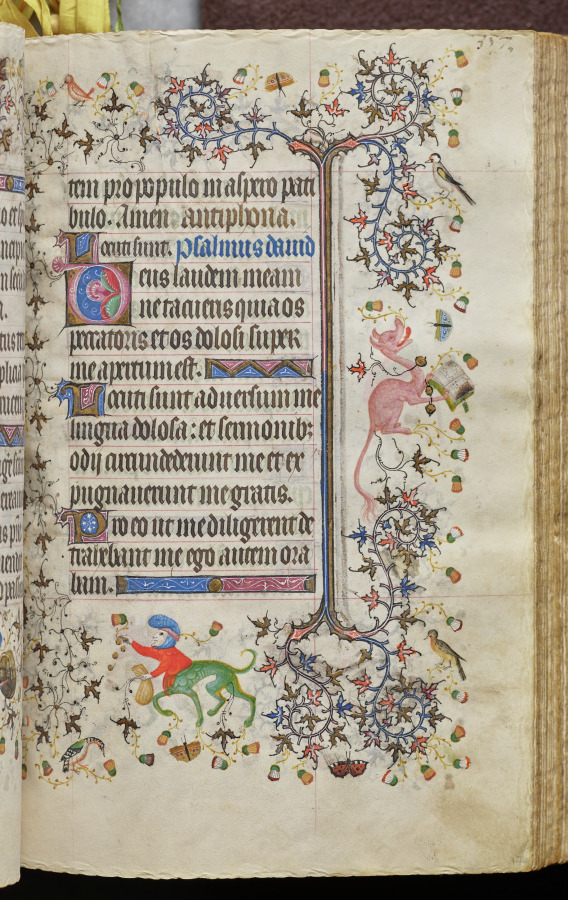 tem pro populo in aspero pati
bulo. Amen antiphona.
Locuti sunt. psalmus dauid
Deus laudem meam
ne tacueris quia os
peccatoris et os dolosi super
me apertum est.
Locuti sunt aduersum me
lingua dolosa: et sermonib:
odij circundederunt me et ex
pugnauerunt me gratis.
Pro eo ut me diligerent de
trahebant me ego autem ora
bam.